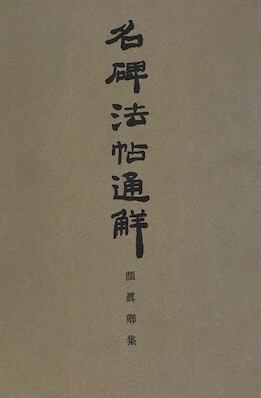 名碑法帖通解
顔眞卿集